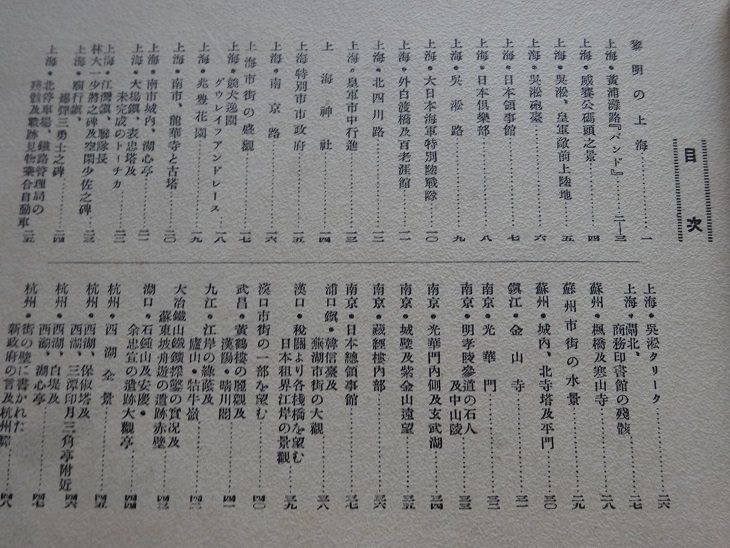 目次
黎明の上海…………一
上海・黃浦灘路『バンド』……二―三
上海・威賽公碼頭之景……四
上海・吳淞、皇軍敵前上陸地……五
上海・吳淞砲臺……六
上海・日本領事館……七
上海・日本俱樂部……八
上海・吳淞路……九
上海・大日本海軍特別陸戰隊……一〇
上海・外白渡橋及百老滙館……一一
上海・北四川路……一二
上海・皇軍市中行進……一三
上海神社……一四
上海特別市市政府……一五
上海・南京路……一六
上海市街の盛觀……一七
上海・競犬逸園
グウレイフアンドレース……一八
上海・兆豐花園……一九
上海・南市、龍華寺と古塔……二〇
上海・南市城內、湖心亭……二一
上海・大場鎭、表忠塔及
未完成のトーチカ……二二
上海・江灣鎭、聯隊長
林大一少將之碑及空閑少佐之碑……二三
上海・廟行鎭、
爆彈三勇士之碑……二四
上海・北停車場、鐵路管理局の
殘骸及戰跡見物乘合自動車……二五
上海・吳淞クリーク……二六
上海・閘北、
商務印書館の殘骸……二七
蘇州・楓橋及寒山寺……二八
蘇州市街の水景……二九
蘇州・城內、北寺塔及平門……三〇
鎭江・金山寺……三一
南京・光華門……三二
南京・明孝陵參道の石人
及中山陵……三三
南京・光華門內側及玄武湖……三四
南京・城壁及紫金山遠望……三五
南京・藏經樓內部……三六
南京・日本總領事館……三七
浦口鎭・韓信臺及
蕪湖市街の大觀……三八
漢口・稅關より各棧橋を望む
日本租界江岸の景觀……三九
漢口市街の一部を望む……四〇
武昌・黃鶴樓の麗觀及
漢陽・晴川閣……四一
九江・江岸の綠蔭及
廬山・牯牛嶺……四二
大冶鐵山鐵鑛採鑿の實況及
蘇東坡舟遊の遺跡赤壁……四三
湖口・石鐘山及安慶・
余忠宣の遺跡大觀亭……四四
杭州・西湖全景……四五
杭州・西湖、保俶塔及
西湖、三潭印月三角亭附近……四六
杭州・西湖、白堤及
西湖、湖心亭……四七
杭州・街の壁に書かれた
新政府の宣言及杭州驛……四八